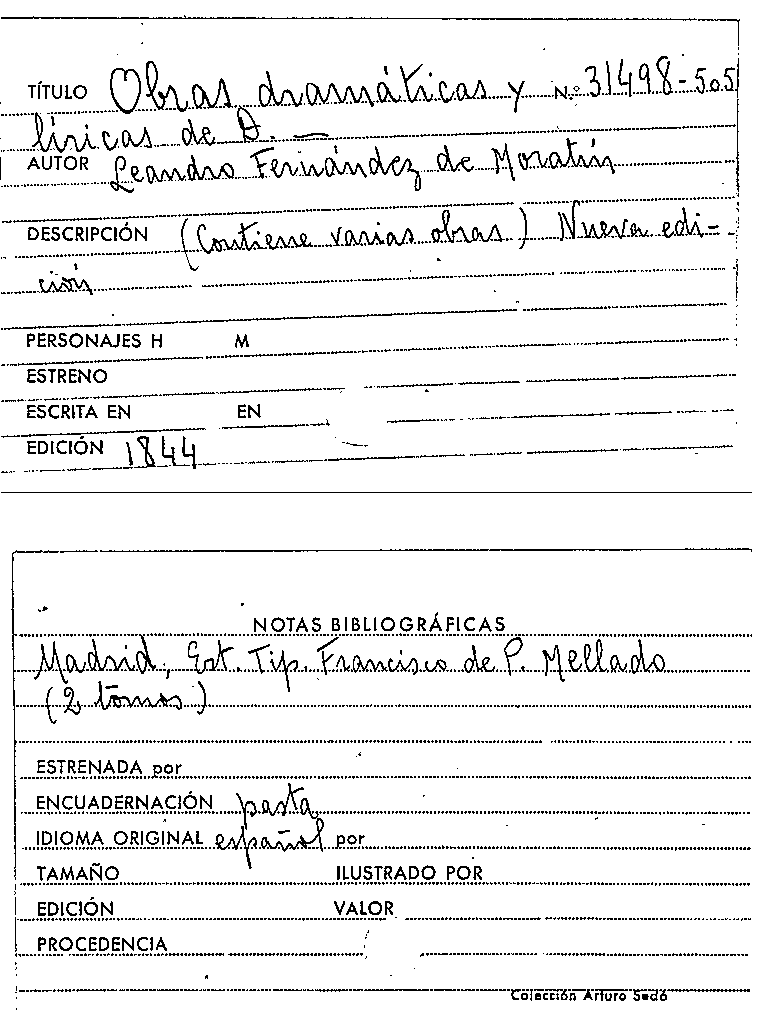 TÍTULO Obras dramáticas y N.º 31498-505
líricas de D. —
AUTOR Leandro Fernández de Moratín
DESCRIPCIÓN (Contiene varias obras) Nueva edi-
ción
PERSONAJES H M
ESTRENO
ESCRITA EN EN
EDICIÓN 1844
NOTAS BIBLIOGRÁFICAS
Madrid, Est. Tip. Francisco de P. Mellado
(2 tomos)
ESTRENADA por
ENCUADERNACIÓN pasta
IDIOMA ORIGINAL español por
TAMAÑO ILUSTRADO POR
EDICIÓN VALOR
PROCEDENCIA
Colección Arturo Sedó